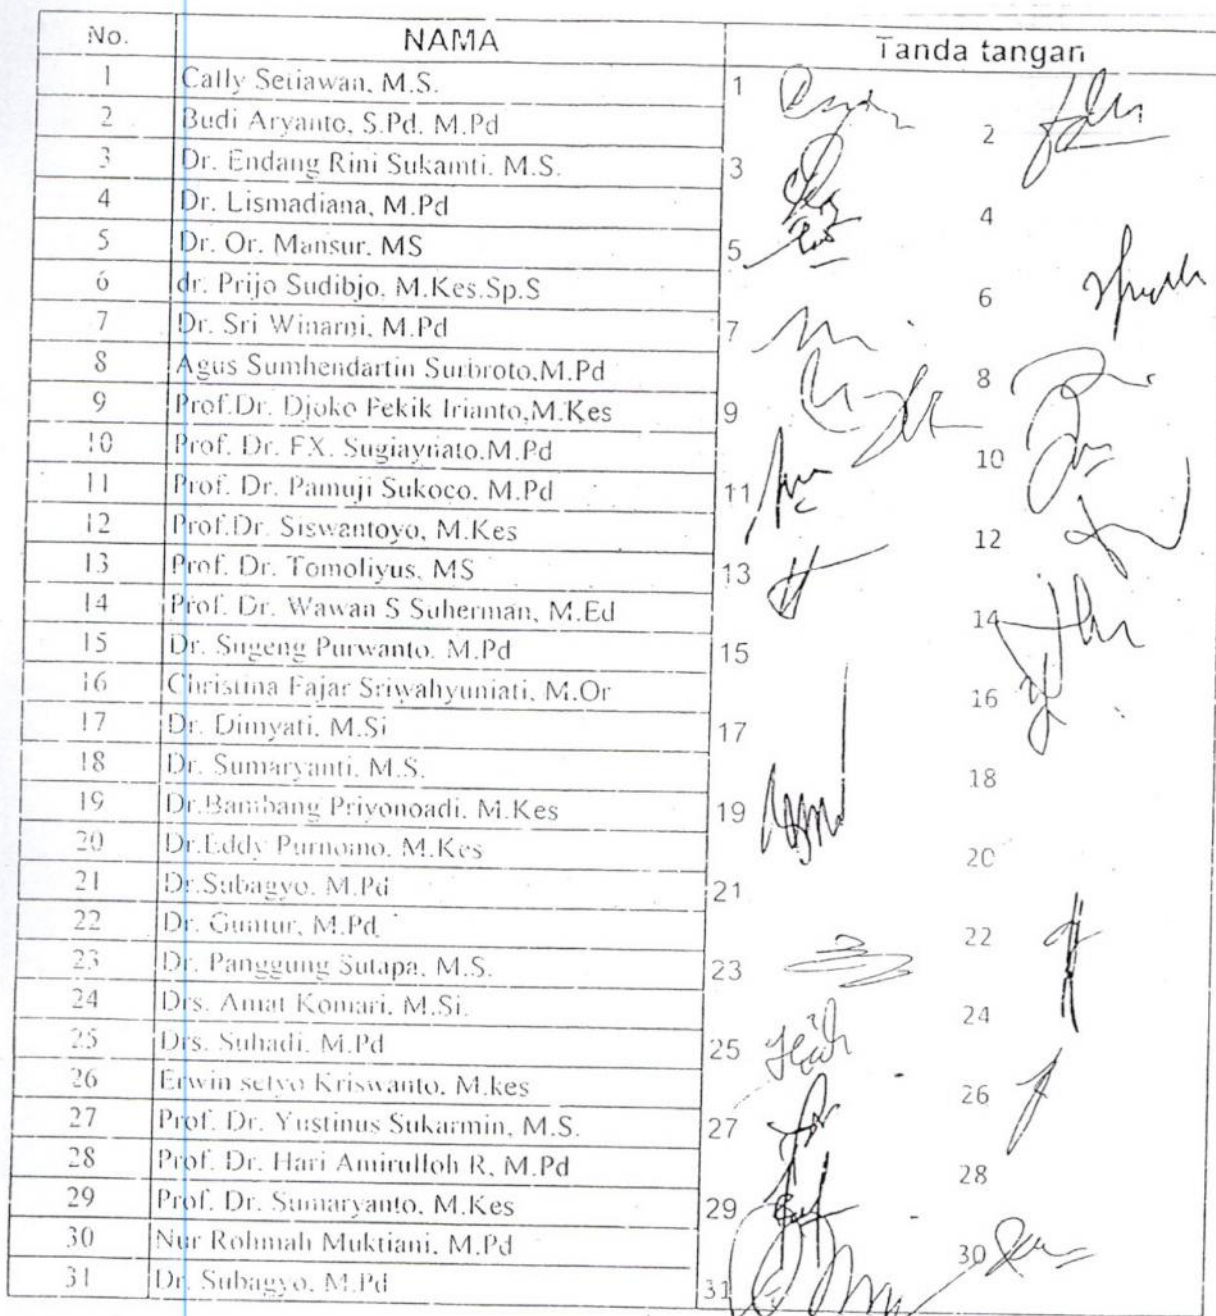 No. NAMA Tanda tangan
1 Cally Setiawan, M.S. 1
2 Budi Aryanto, S.Pd. M.Pd 2
3 Dr. Endang Rini Sukamti. M.S. 3
4 Dr. Lismadiana, M.Pd 4
5 Dr. Or. Mansur. MS 5
6 dr. Prijo Sudibjo, M.Kes.Sp.S 6
7 Dr. Sri Winarni, M.Pd 7
8 Agus Sumhendartin Surbroto,M.Pd 8
9 Prof.Dr. Djoko Pekik Irianto,M.Kes 9
10 Prof. Dr. FX. Sugiaynato.M.Pd 10
11 Prof. Dr. Pamuji Sukoco. M.Pd 11
12 Prof.Dr. Siswantoyo, M.Kes 12
13 Prof. Dr. Tomoliyus, MS 13
14 Prof. Dr. Wawan S Suherman, M.Ed 14
15 Dr. Sugeng Purwanto. M.Pd 15
16 Christina Fajar Sriwahyuniati. M.Or 16
17 Dr. Dimyati. M.Si 17
18 Dr. Sumaryanti. M.S. 18
19 Dr.Bambang Priyonoadi. M.Kes 19
20 Dr.Eddy Purnomo. M.Kes 20
21 Dr.Subagyo. M.Pd 21
22 Dr. Guntur, M.Pd. 22
23 Dr. Panggung Sutapa. M.S. 23
24 Drs. Amat Komari. M.Si. 24
25 Drs. Suhadi. M.Pd 25
26 Erwin setyo Kriswanto. M.kes 26
27 Prof. Dr. Yustinus Sukarmin, M.S. 27
28 Prof. Dr. Hari Amirulloh R, M.Pd 28
29 Prof. Dr. Sumaryanto. M.Kes 29
30 Nur Rohmah Muktiani. M.Pd 30
31 Dr. Subagyo. M.Pd 31